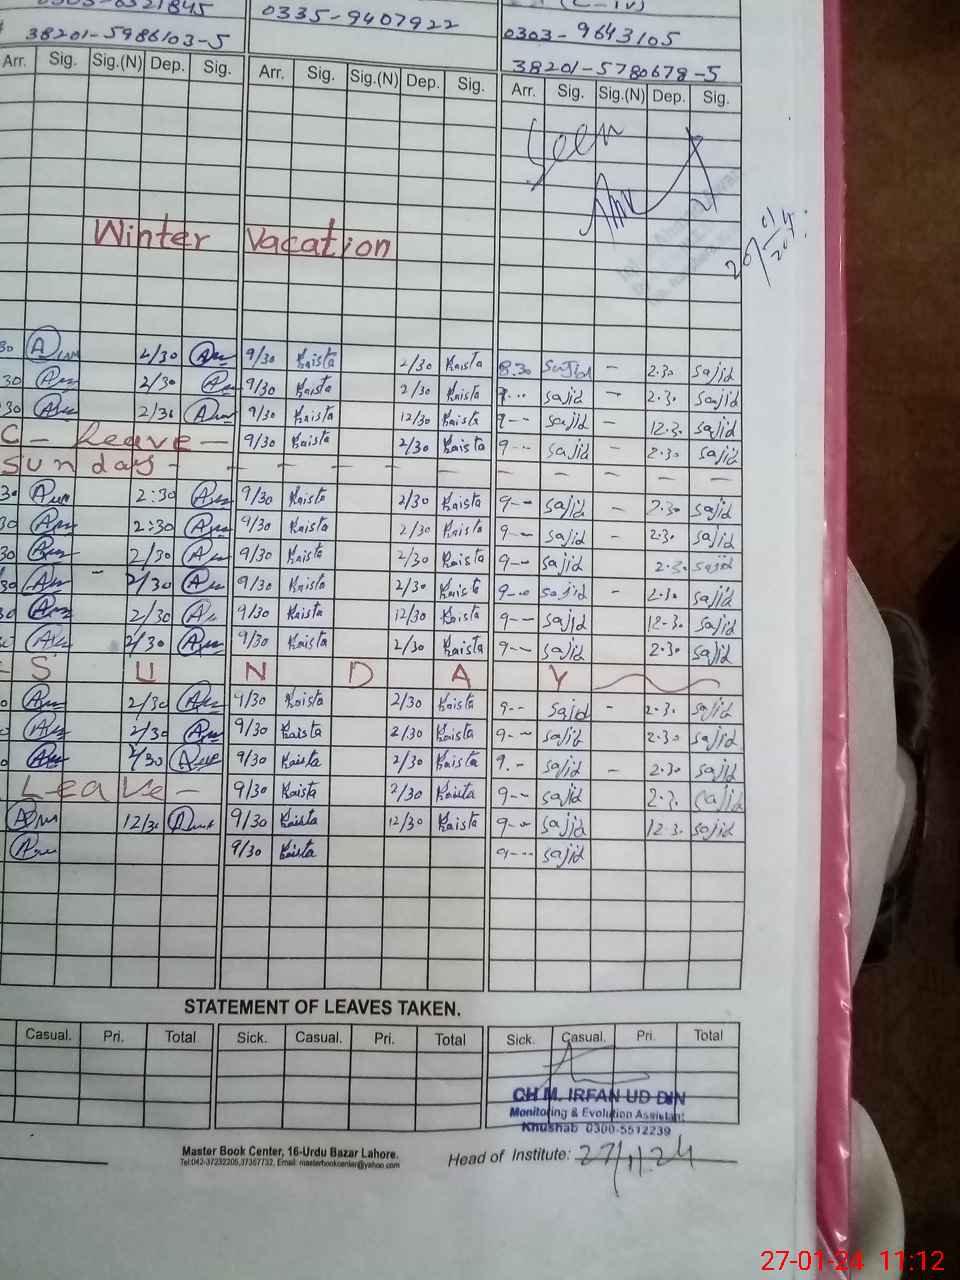 0335-9407922
38201-5986103-5
0303-9643105
38201-5780678-5
Arr. Sig. Sig.(N) Dep. Sig. Arr. Sig. Sig.(N) Dep. Sig. Arr. Sig. Sig.(N) Dep. Sig.
Seen
Winter Vacation
30 2/30 9/30 Kaista 2/30 Kaista 8.30 Sajid - 2.30 sajid
30 2/30 9/30 Kaista 2/30 Kaista 9--- sajid - 2.30 sajid
30 2/30 9/30 Kaista 12/30 Kaista 9-- sajid - 12.30 sajid
C - Leave - 9/30 Kaista 2/30 Kaista 9--- sajid - 2.30 sajid
Sunday - - - - - - - - -
30 2:30 9/30 Kaista 2/30 Kaista 9-- sajid - 2.30 sajid
30 2:30 9/30 Kaista 2/30 Kaista 9--- sajid - 2.30 sajid
30 2/30 9/30 Kaista 2/30 Kaista 9--- sajid 2.30 sajid
30 - 2/30 9/30 Kaista 2/30 Kaista 9--- sajid - 2.30 sajid
30 2/30 9/30 Kaista 12/30 Kaista 9--- sajid 12-30 sajid
2/30 9/30 Kaista 2/30 Kaista 9--- sajid 2.30 sajid
S U N D A Y
2/30 9/30 Kaista 2/30 Kaista 9-- sajid - 2.30 sajid
2/30 9/30 Kaista 2/30 Kaista 9--- sajid 2.30 sajid
2/30 9/30 Kaista 2/30 Kaista 9.- sajid - 2.30 sajid
Leave - 9/30 Kaista 2/30 Kaista 9-- sajid 2.30 sajid
12/30 9/30 Kaista 12/30 Kaista 9--- sajid 12.30 sajid
9/30 Kaista 9--- sajid
STATEMENT OF LEAVES TAKEN.
Casual. Pri. Total Sick. Casual. Pri. Total Sick. Casual. Pri. Total
CH M. IRFAN UD DIN
Monitoring & Evolution Assistant
Khushab 0300-5512239
Master Book Center, 16-Urdu Bazar Lahore.
Tel:042-37232205,37357732, Email: masterbookcenter@yahoo.com
Head of Institute: 27/1/24
27-01-24 11:12